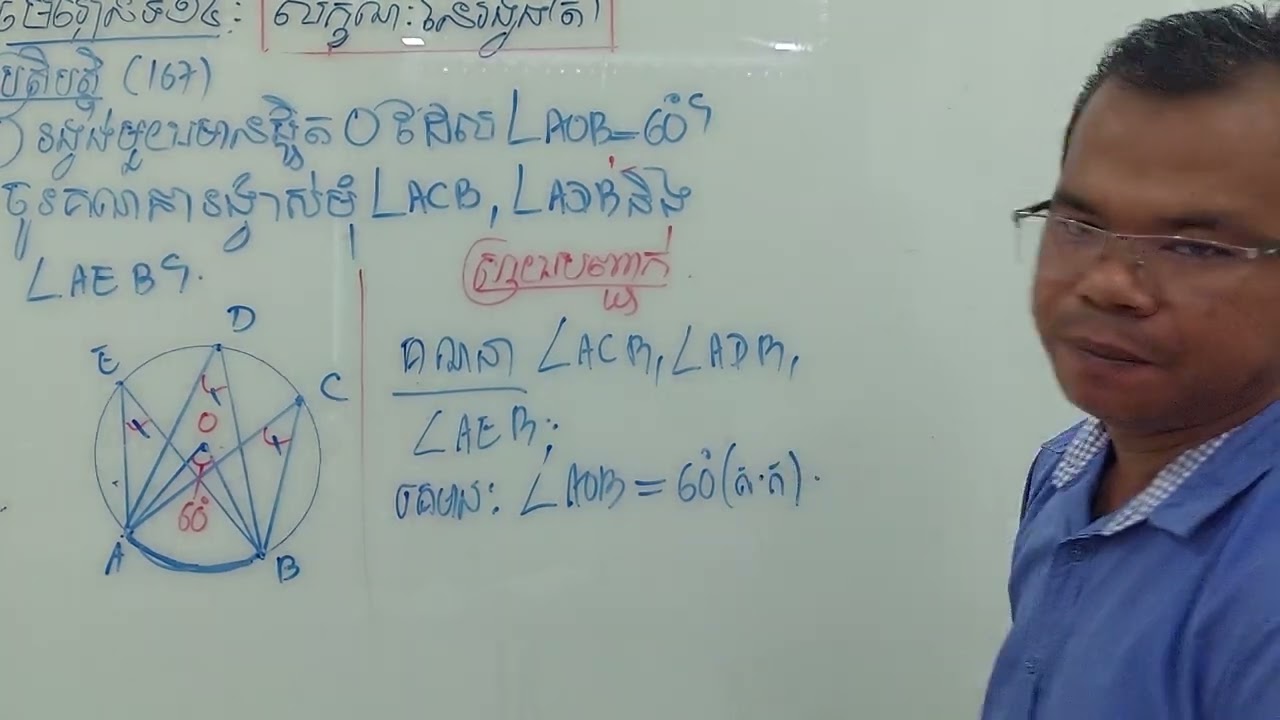 មេរៀនទី១៤: លក្ខណៈនៃរង្វង់(ត)
ប្រតិបត្តិ (167)
រង្វង់មួយមានផ្ចិត O ដែល ∠AOB=60°។
ចូរគណនារង្វាស់មុំ ∠ACB, ∠ADB និង
∠AEB។
គណនា ∠ACB, ∠ADB,
∠AEB:
គេមាន: ∠AOB = 60° (ត.ក).
D
E
C
O
60°
A
B